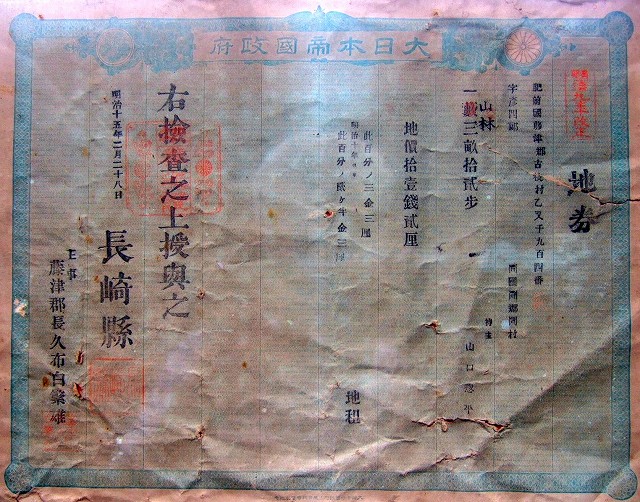 大日本帝國政府
地券
肥前國藤津郡古枝村乙又千九百四番
字彦四郎
同國同郡同村
持主 山口
山林
一畝三畝拾貳步
地價拾壹錢貳厘
此百分ノ三金三厘 地租
明治十年
此百分ノ貳ケ半金三厘
右檢査之上授與之
明治十五年二月二十八日
長崎縣
主事
藤津郡長久布白繁雄